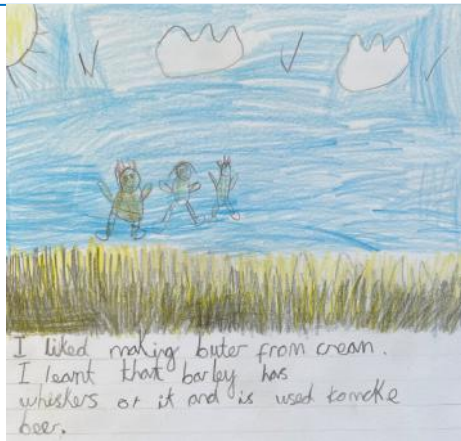 I liked making buter from cream.
I leant that barley has
whiskers or it and is used tomake
beer.